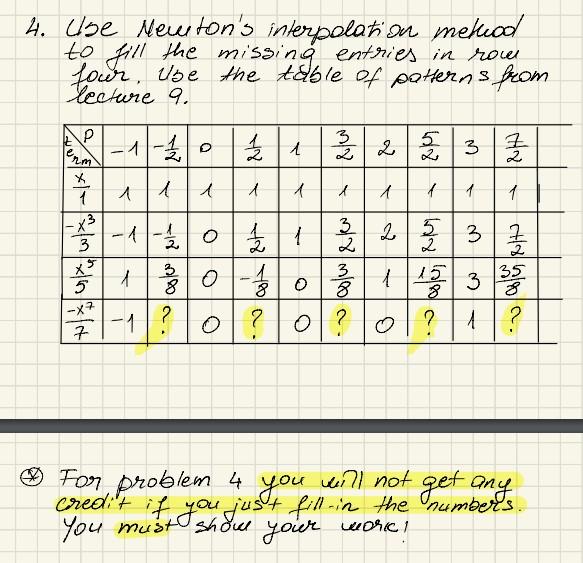 4. Use Newton's interpolation method
to fill the missing entries in row
four. Use the table of patterns from
lecture 9.
term P -1 -1/2 0 1/2 1 3/2 2 5/2 3 7/2
x/1 1 1 1 1 1 1 1 1 1 1
-x³/3 -1 -1/2 0 1/2 1 3/2 2 5/2 3 7/2
x⁵/5 1 3/8 0 -1/8 0 3/8 1 15/8 3 35/8
-x⁷/7 -1 ? 0 ? 0 ? 0 ? 1 ?
⊛ For problem 4 you will not get any
credit if you just fill-in the numbers.
You must show your work!